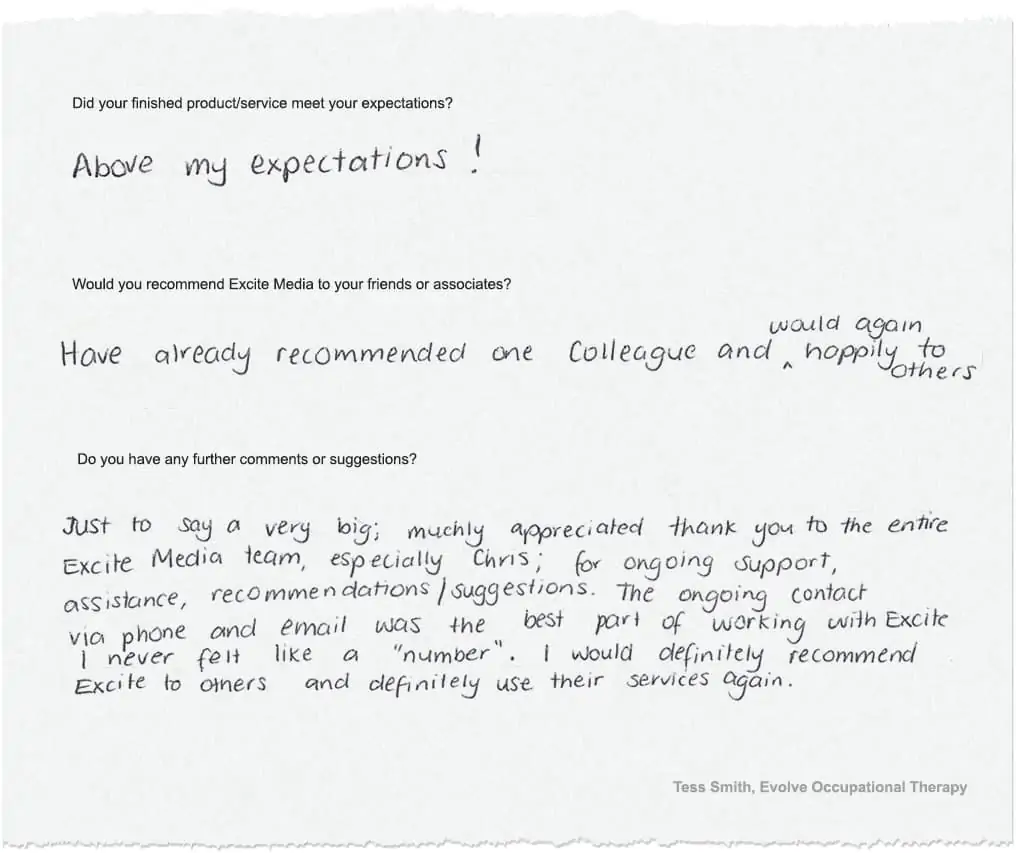 Did your finished product/service meet your expectations?
Above my expectations !
Would you recommend Excite Media to your friends or associates?
would again
Have already recommended one Colleague and ^ happily to
others
Do you have any further comments or suggestions?
Just to say a very big; muchly appreciated thank you to the entire
Excite Media team, especially Chris; for ongoing support,
assistance, recommendations/suggestions. The ongoing contact
via phone and email was the best part of working with Excite
I never felt like a "number". I would definitely recommend
Excite to others and definitely use their services again.
Tess Smith, Evolve Occupational Therapy